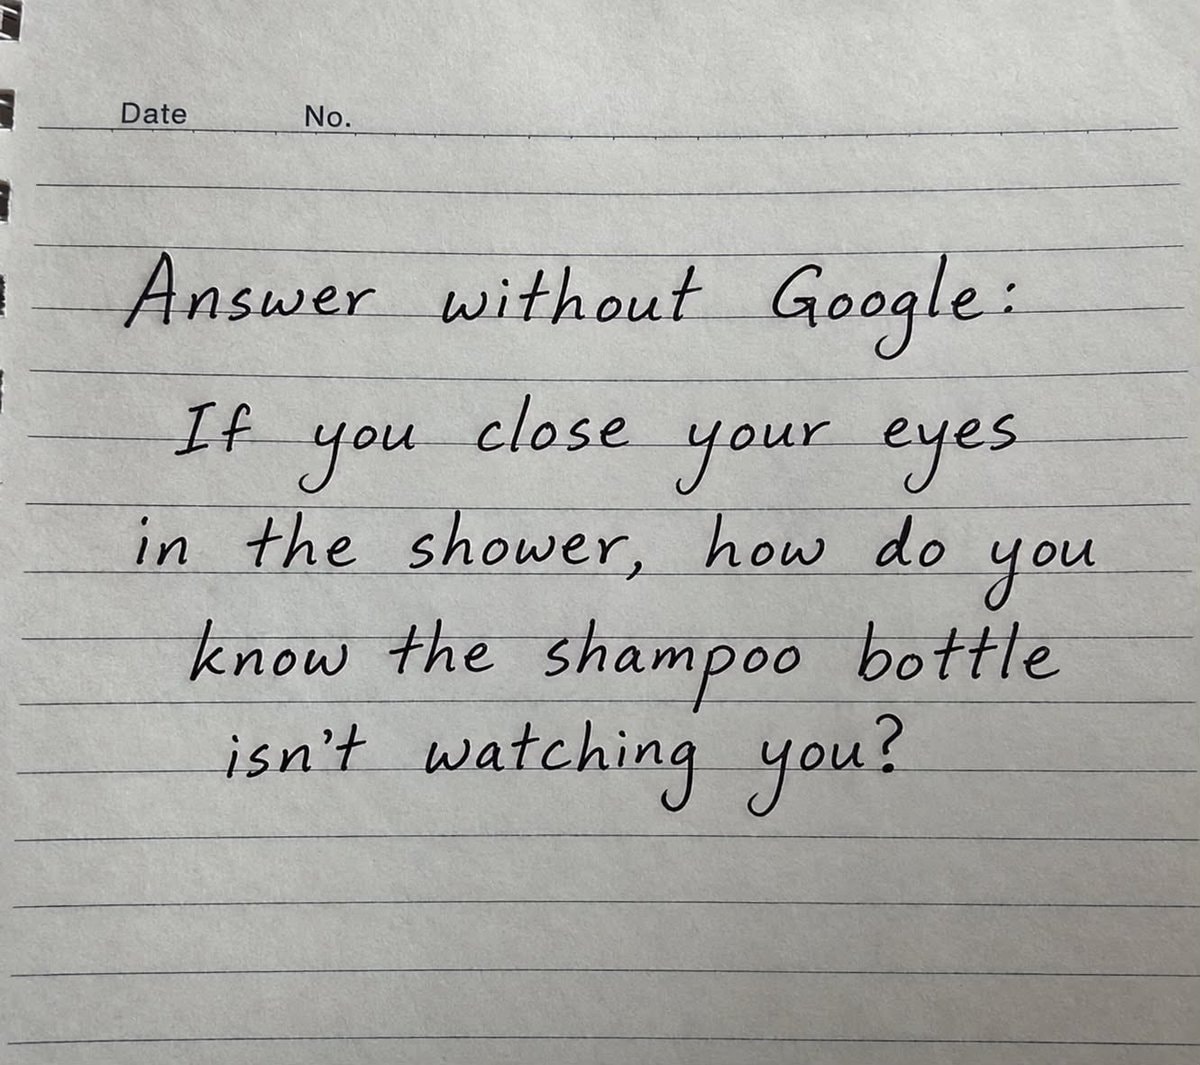 Date No.
Answer without Google:
If you close your eyes
in the shower, how do you
know the shampoo bottle
isn't watching you?